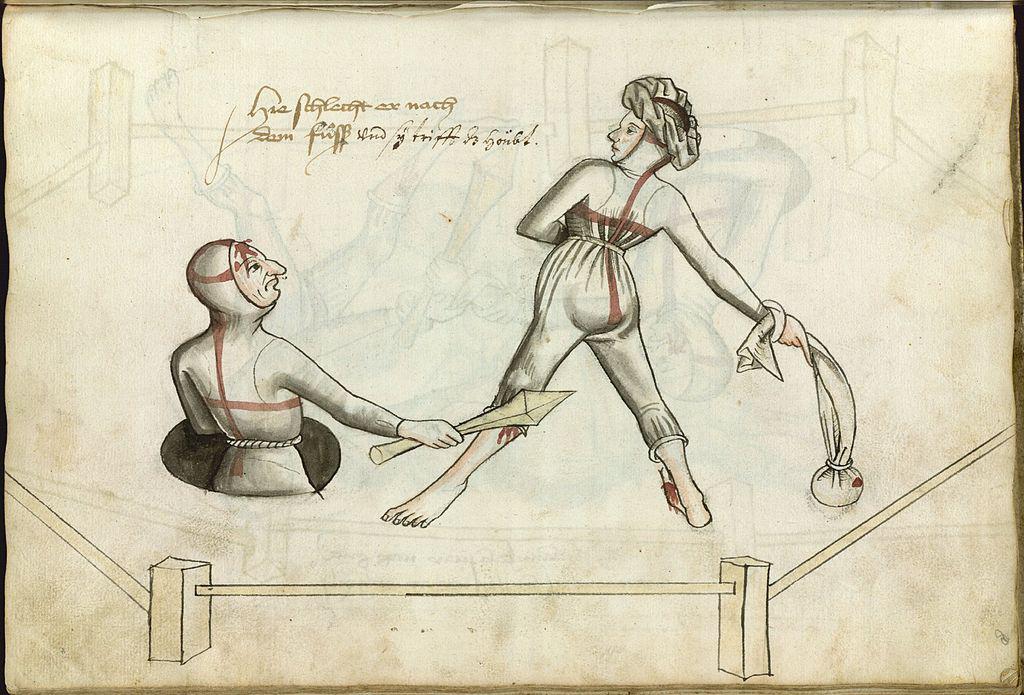 Hie schlecht er nach
dem füsß und sy trifft dz höubt.